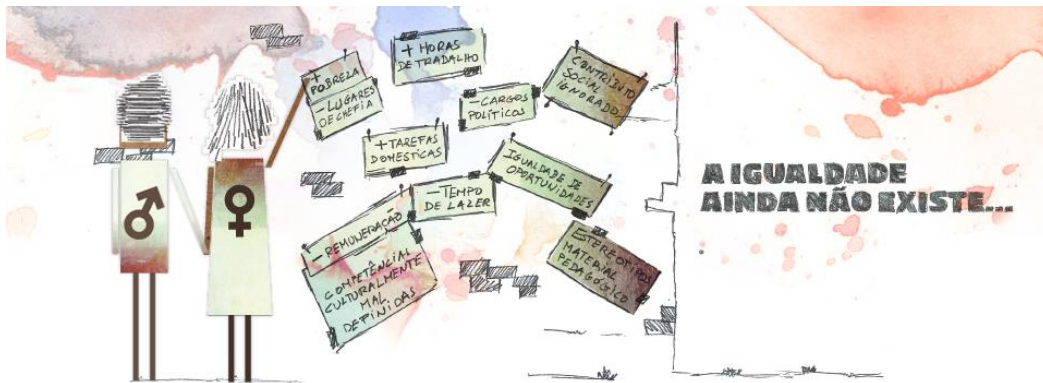 +
POBREZA
- LUGARES
DE CHEFIA
+ HORAS
DE TRABALHO
- CARGOS
POLÍTICOS
CONTRIBUTO
SOCIAL
IGNORADO
+ TAREFAS
DOMESTICAS
IGUALDADE DE
OPORTUNIDADES
- TEMPO
DE LAZER
- REMUNERAÇÃO
COMPETÊNCIAS
CULTURALMENTE
MAL
DEFINIDAS
ESTEREOTIPOS
MATERIAL
PEDAGÓGICO
A IGUALDADE
AINDA NÃO EXISTE...